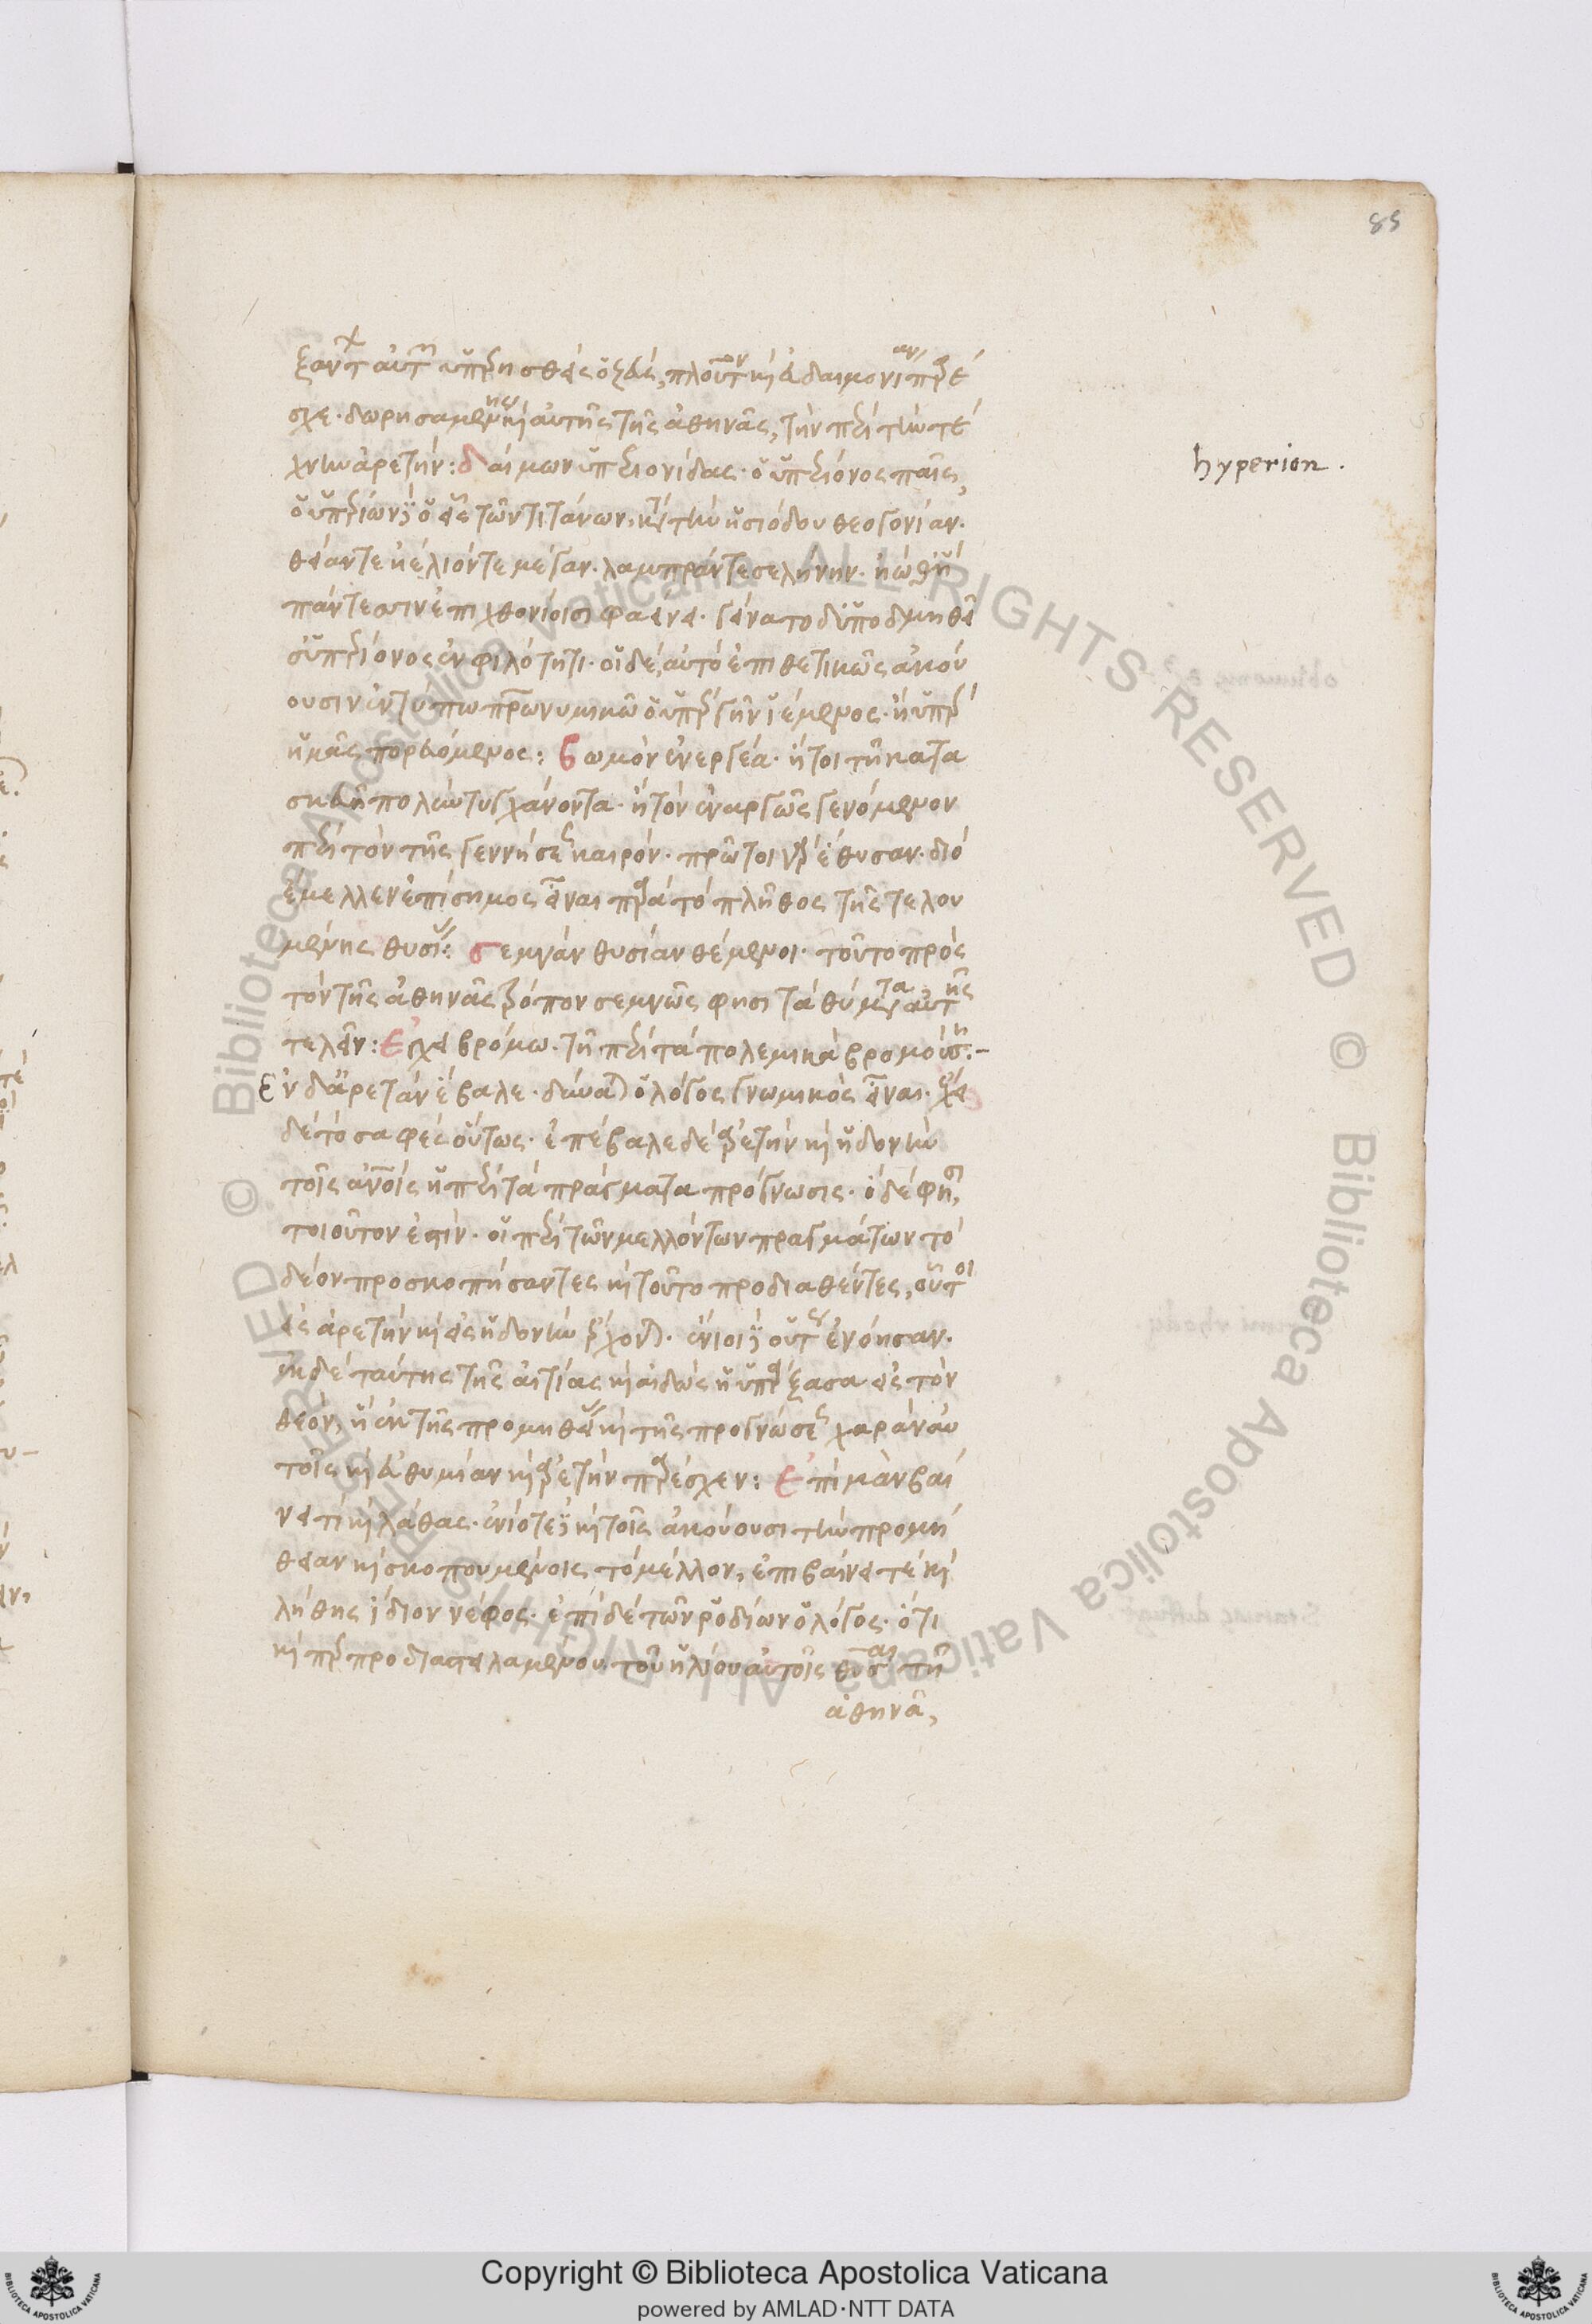 85
ξαντ αὐτ ὑπερησθεὶς ὁ ζεύς, πλοῦτον καὶ εὐδαιμονίαν παρέ
σχε. δωρησαμένης καὶ αὐτῆς τῆς ἀθηνᾶς, τὴν περὶ τὴν τέ
χνην ἀρετήν: δαίμων ὑπεριονίδας. ὁ ὑπερίονος παῖς,
hyperion.
ὁ ὑπερίων δὲ ὁ εἷς τῶν τιτάνων. κατὰ τὴν ἡσιόδου θεογονίαν.
θεία ντε ἠέλιόν τε μέγαν. λαμπράν τε σελήνην. ἠώ θ' ἣ
πάντεσσιν ἐπιχθονίοισι φαείνει. γείνατο δ' ὑποδμηθεῖ
σ' ὑπερίονος ἐν φιλότητι. οἱ δὲ, αὐτὸ ἐπιθετικῶς ἀκού
ουσιν ἐν τύπω πατρωνυμικῶ ὁ ὑπὲρ γῆν ἱέμενος. ἢ ὑπὲρ
ἡμᾶς πορευόμενος: βωμὸν ἐνεργέα. ἤτοι τῆ κατα
σκευῆ πολὺν τυγχάνοντα. ἢ τὸν ἐναργῶς γενόμενον
περὶ τὸν τῆς γεννήσεως καιρόν. πρῶτοι γὰρ ἔθυσαν. διὸ
ἔμελλεν ἐπίσημος εἶναι παρὰ τὸ πλῆθος τῆς τελου
μένης θυσίας: σεμνὰν θυσίαν θέμενοι. τοῦτο πρὸς
τὸν τῆς ἀθηνᾶς τρόπον σεμνῶς φησι τὰ θύματα αὐτῆς
τελεῖν: ἐγχειβρόμω. τῆ περὶ τὰ πολεμικὰ βρομούση:-
Ἐν δ' ἀρετὰν ἔβαλε. δύναται ὁ λόγος γνωμικὸς εἶναι. ἔχει
δὲ τὸ σαφὲς οὕτως. ἐπέβαλε δὲ ἀρετὴν καὶ ἡδονὴν
τοῖς ἀνθρώποις ἡ περὶ τὰ πράγματα πρόγνωσις. ὃ δέ φησι,
τοιοῦτον ἐστίν. οἱ περὶ τῶν μελλόντων πραγμάτων τὸ
δέον προσκοπήσαντες καὶ τοῦτο προδιαθέντες, οὗτοι
εἰς ἀρετὴν καὶ εἰς ἡδονὴν ἔρχονται. ἔνιοι δὲ οὕτως ἐνόησαν.
ἐκ δὲ ταύτης τῆς αἰτίας καὶ αἰδὼς ἡ ὑπάρξασα εἰς τὸν
θεόν, ἡ ἐκ τῆς προμηθείας καὶ τῆς προγνώσεως χαρὰν αὐ
τοῖς καὶ εὐθυμίαν καὶ ἀρετὴν παρέσχεν: ἐπὶ μὰν βαί
νει τι καὶ λάθας. ἐνίοτε δὲ καὶ τοῖς ἀκούουσι τὴν προμή
θειαν καὶ σκοπουμένοις τὸ μέλλον, ἐπιβαίνει τὲ καὶ
λήθης ἴδιον νέφος. ἐπὶ δὲ τῶν ῥοδίων ὁ λόγος. ὅτι
καὶ περ προδιαστειλαμένου τοῦ ἡλίου αὐτοῖς θῦσαι τῆ
ἀθηνᾶ,
Copyright © Biblioteca Apostolica Vaticana
powered by AMLAD·NTT DATA